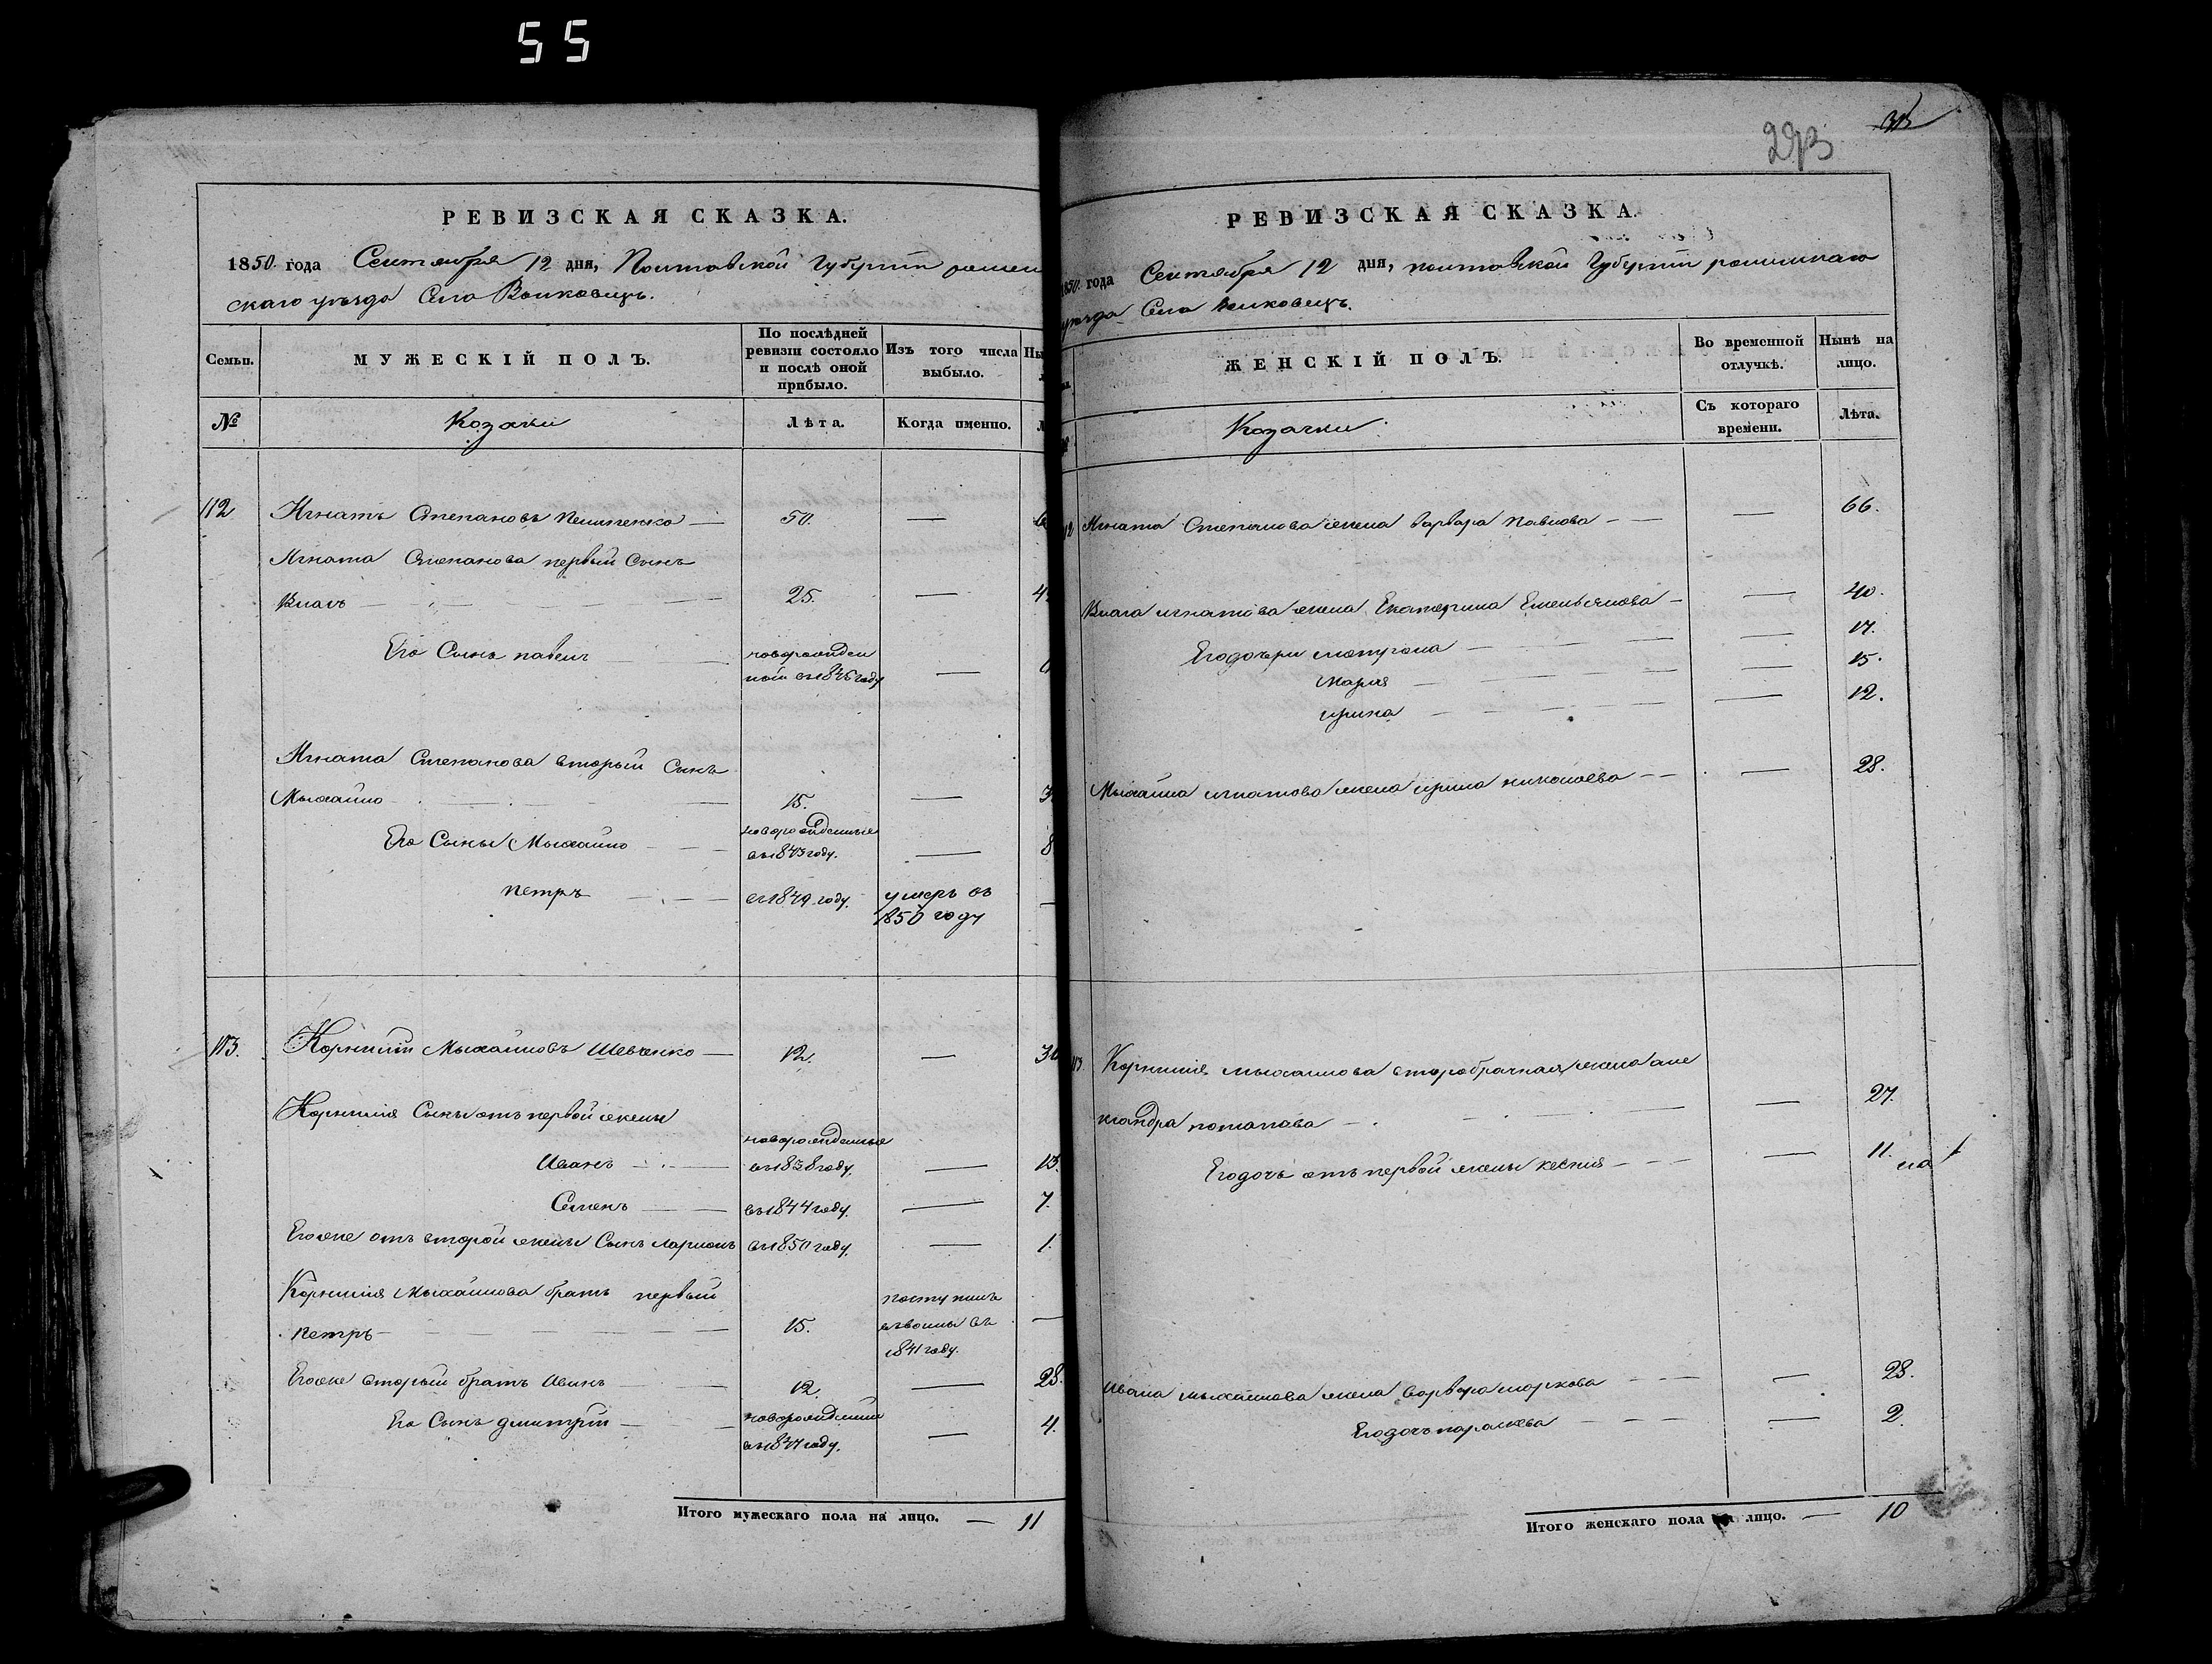 55
РЕВИЗСКАЯ СКАЗКА.
1850 года Сентября 12 дня, Полтавской Губерніи ромен
скаго уезда Села Волковецъ.
Семьи.
МУЖЕСКІЙ ПОЛЪ.
По послѣдней ревизіи состояло и послѣ оной прибыло.
Изъ того числа выбыло.
№
Козаки
Лѣта.
Когда именно.
112 Игнатъ Степановъ — 50. —
Игната Степанова первый Сынъ
Власъ — 25. —
Его Сынъ павелъ новорожден
ной въ 1845 году —
Игната Степанова вторый Сынъ
Мыхайло — 15. —
Его Сыны Мыхайло — новорожденные
въ 1843 году. — 8
петръ — въ 1849 году. умеръ въ
1850 году —
113. Корнилій Мыхайловъ Шевченко — 12. —
Корнилія Сыны отъ первой жены
Иванъ — новорожденные
въ 1838 году. — 13.
Семенъ — въ 1844 году. — 7.
Егоже отъ второй жены Сынъ ларионъ въ 1850 году. — 1.
Корнилія Мыхайлова братъ первый
петръ — 15. поступилъ
въ 1841 году. —
Егоже вторый братъ Иванъ — 12. — 28.
Его Сынъ дмитрій — новорожденный
въ 1847 году. — 4.
Итого мужескаго пола на лицо. — 11
293
РЕВИЗСКАЯ СКАЗКА.
1850 года Сентября 12 дня, полтавской Губерніи роминскаго
уезда Села волковецъ.
ЖЕНСКІЙ ПОЛЪ.
Во временной отлучкѣ.
Нынѣ на лицо.
Козачки
Съ котораго времени.
Лѣта.
112 Игната Степанова жена варвара павлова — — 66.
Власа игнатова жена Екатерина Емельянова — — 40.
Егодочери мотрона — — 17.
Мария — — 15.
ирина — — 12.
Мыхайла игнатова жена ирина николаева — — 28.
113 Корнилія мыхайлова второбрачная жена але
ксандра потапова — — 27.
Егодочь отъ первой жены ксения — — 11.
Ивана мыхайлова жена варвара маркова — — 28.
Егодочь параскева — — 2.
Итого женскаго пола на лицо. — 10